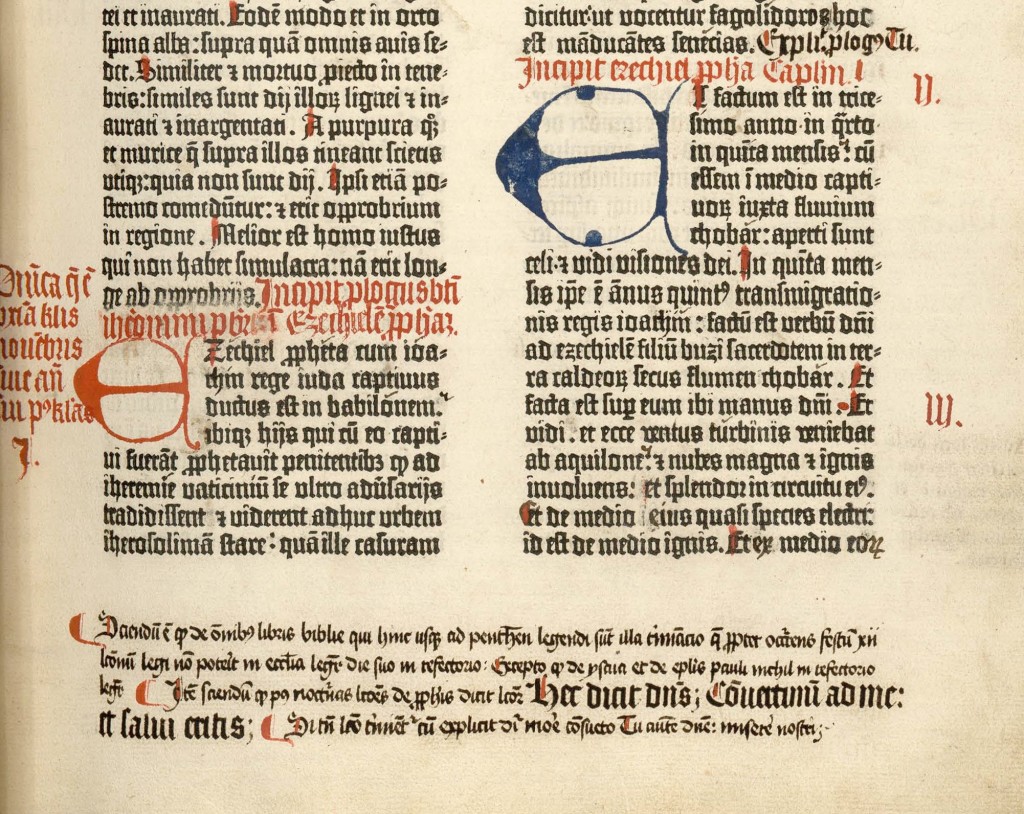 tei et inaurati. Eodē modo et in orto
spina alba: supra quā omnis auis se-
det. Similiter ⁊ mortuo ꝓiecto in tene-
bris: similes sunt dij illoꝝ lignei ⁊ in-
aurati ⁊ inargentati. A purpura q̄ꝫ
et murice q̄ supra illos tineant scietis
utiqꝫ: quia non sunt dij. Ipsi etiā po-
stremo comedūtur: ⁊ erit opprobrium
in regione. Melior est homo iustus
qui non habet simulacra: nā erit lon-
ge ab opprobrijs. Incipit plogus bti
iheronimi pbri ī Ezechielē ꝓphaꝫ.
Ezechiel ꝓpheta cum ioa-
chim rege iuda captiuus
ductus est in babilonem:
ibiqꝫ hijs qui cū eo capti-
ui fuerāt ꝓphetauit penitentibꝫ ꝙ ad
iheremie vaticiniū se ultro adūsarijs
tradidissent ⁊ viderent adhuc urbem
iherosolimā stare: quā ille casuram
I.
dicitur: ut vocentur fagolidoroꝫ hoc
est māducātes senecias. Expliꝫ. plogꝰ Tu.
Incipit ezechiel ꝓpha Caplm I
Et factum est in trice-
simo anno· in q̄rto
in quīta mensis: cū
essem ī medio capti-
uoꝝ iuxta fluuium
chobar: aperti sunt
celi· ⁊ vidi visiones dei. In quīta men-
sis ip̄e ē ānus quintꝰ transmigratio-
nis regis ioachim: factū est verbū dn̄i
ad ezechielē filiū buzi sacerdotem in ter-
ra caldeoꝝ secus flumen chobar. Et
facta est suꝑ eum ibi manus dn̄i. Et
vidi. et ecce ventus turbinis veniebat
ab aquilone: ⁊ nubes magna ⁊ ignis
inuoluens: et splendor in circuitu eiꝰ.
Et de medio eius quasi species electri:
id est de medio ignis. Et ex medio eoꝝ
II.
III.
Sciendū ē ꝙ de ōnibꝰ libris biblie qui hinc usqꝫ ad penthen̄ legendi sūt illa
lc̄onū legi nō poterit in eccl̄ia legr̄ die suo in refectorio: Excepto ꝙ de ysaia et de epl̄is pauli nichil in refectorio
legr̄ Itē sciendū ꝙ de ꝓphis dicit Hec dicit dn̄s; Cōuertimini ad me:
et salui eritis; explicit dr̄ more consueto Tu autē dne: miserē nostri;